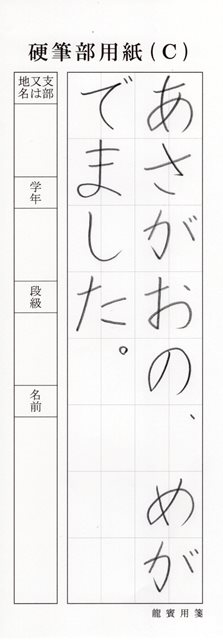 硬筆部用紙(C)
あさがおの、めが
でました。
支部
又は
地名
学年
段級
名前
龍賓用箋